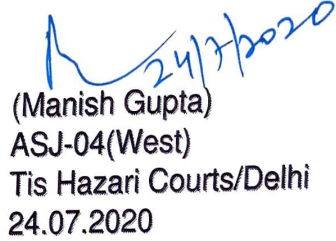 24/7/2020
(Manish Gupta)
ASJ-04(West)
Tis Hazari Courts/Delhi
24.07.2020